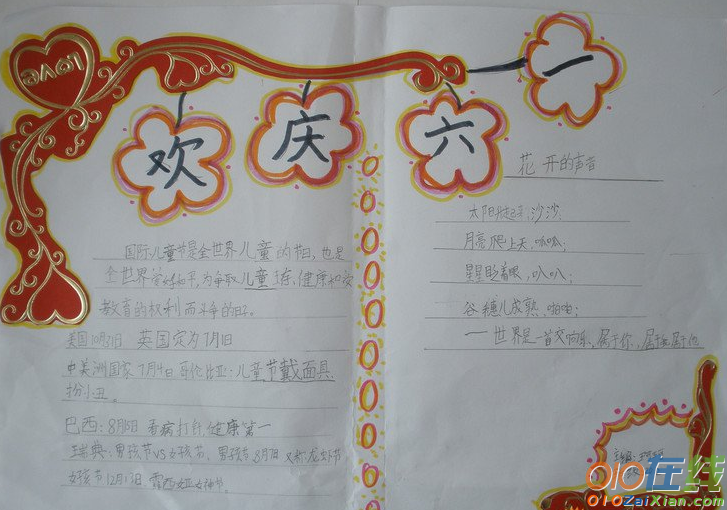 love
欢庆六一
国际儿童节是全世界儿童的节日，也是
全世界爱好和平，为争取儿童 健康和
教育的权利而斗争的日子。
美国10月 日 英国定为7月 日
中美洲国家 7月4日 哥伦比亚：儿童节戴面具
扮小丑。
巴西：8月15日 看病打针，健康第一
瑞典：男孩节VS女孩节、男孩节8月7日 又称龙虾节
女孩节12月13日 露西娅女神节。
花开的声音
太阳 ，沙沙；
月亮爬上天，呱呱；
星星眨着眼，叭叭；
谷穗儿成熟，啪啪；
一世界是一首交响乐，属于你，属于 属于他
010在线
010ZaiXian.com